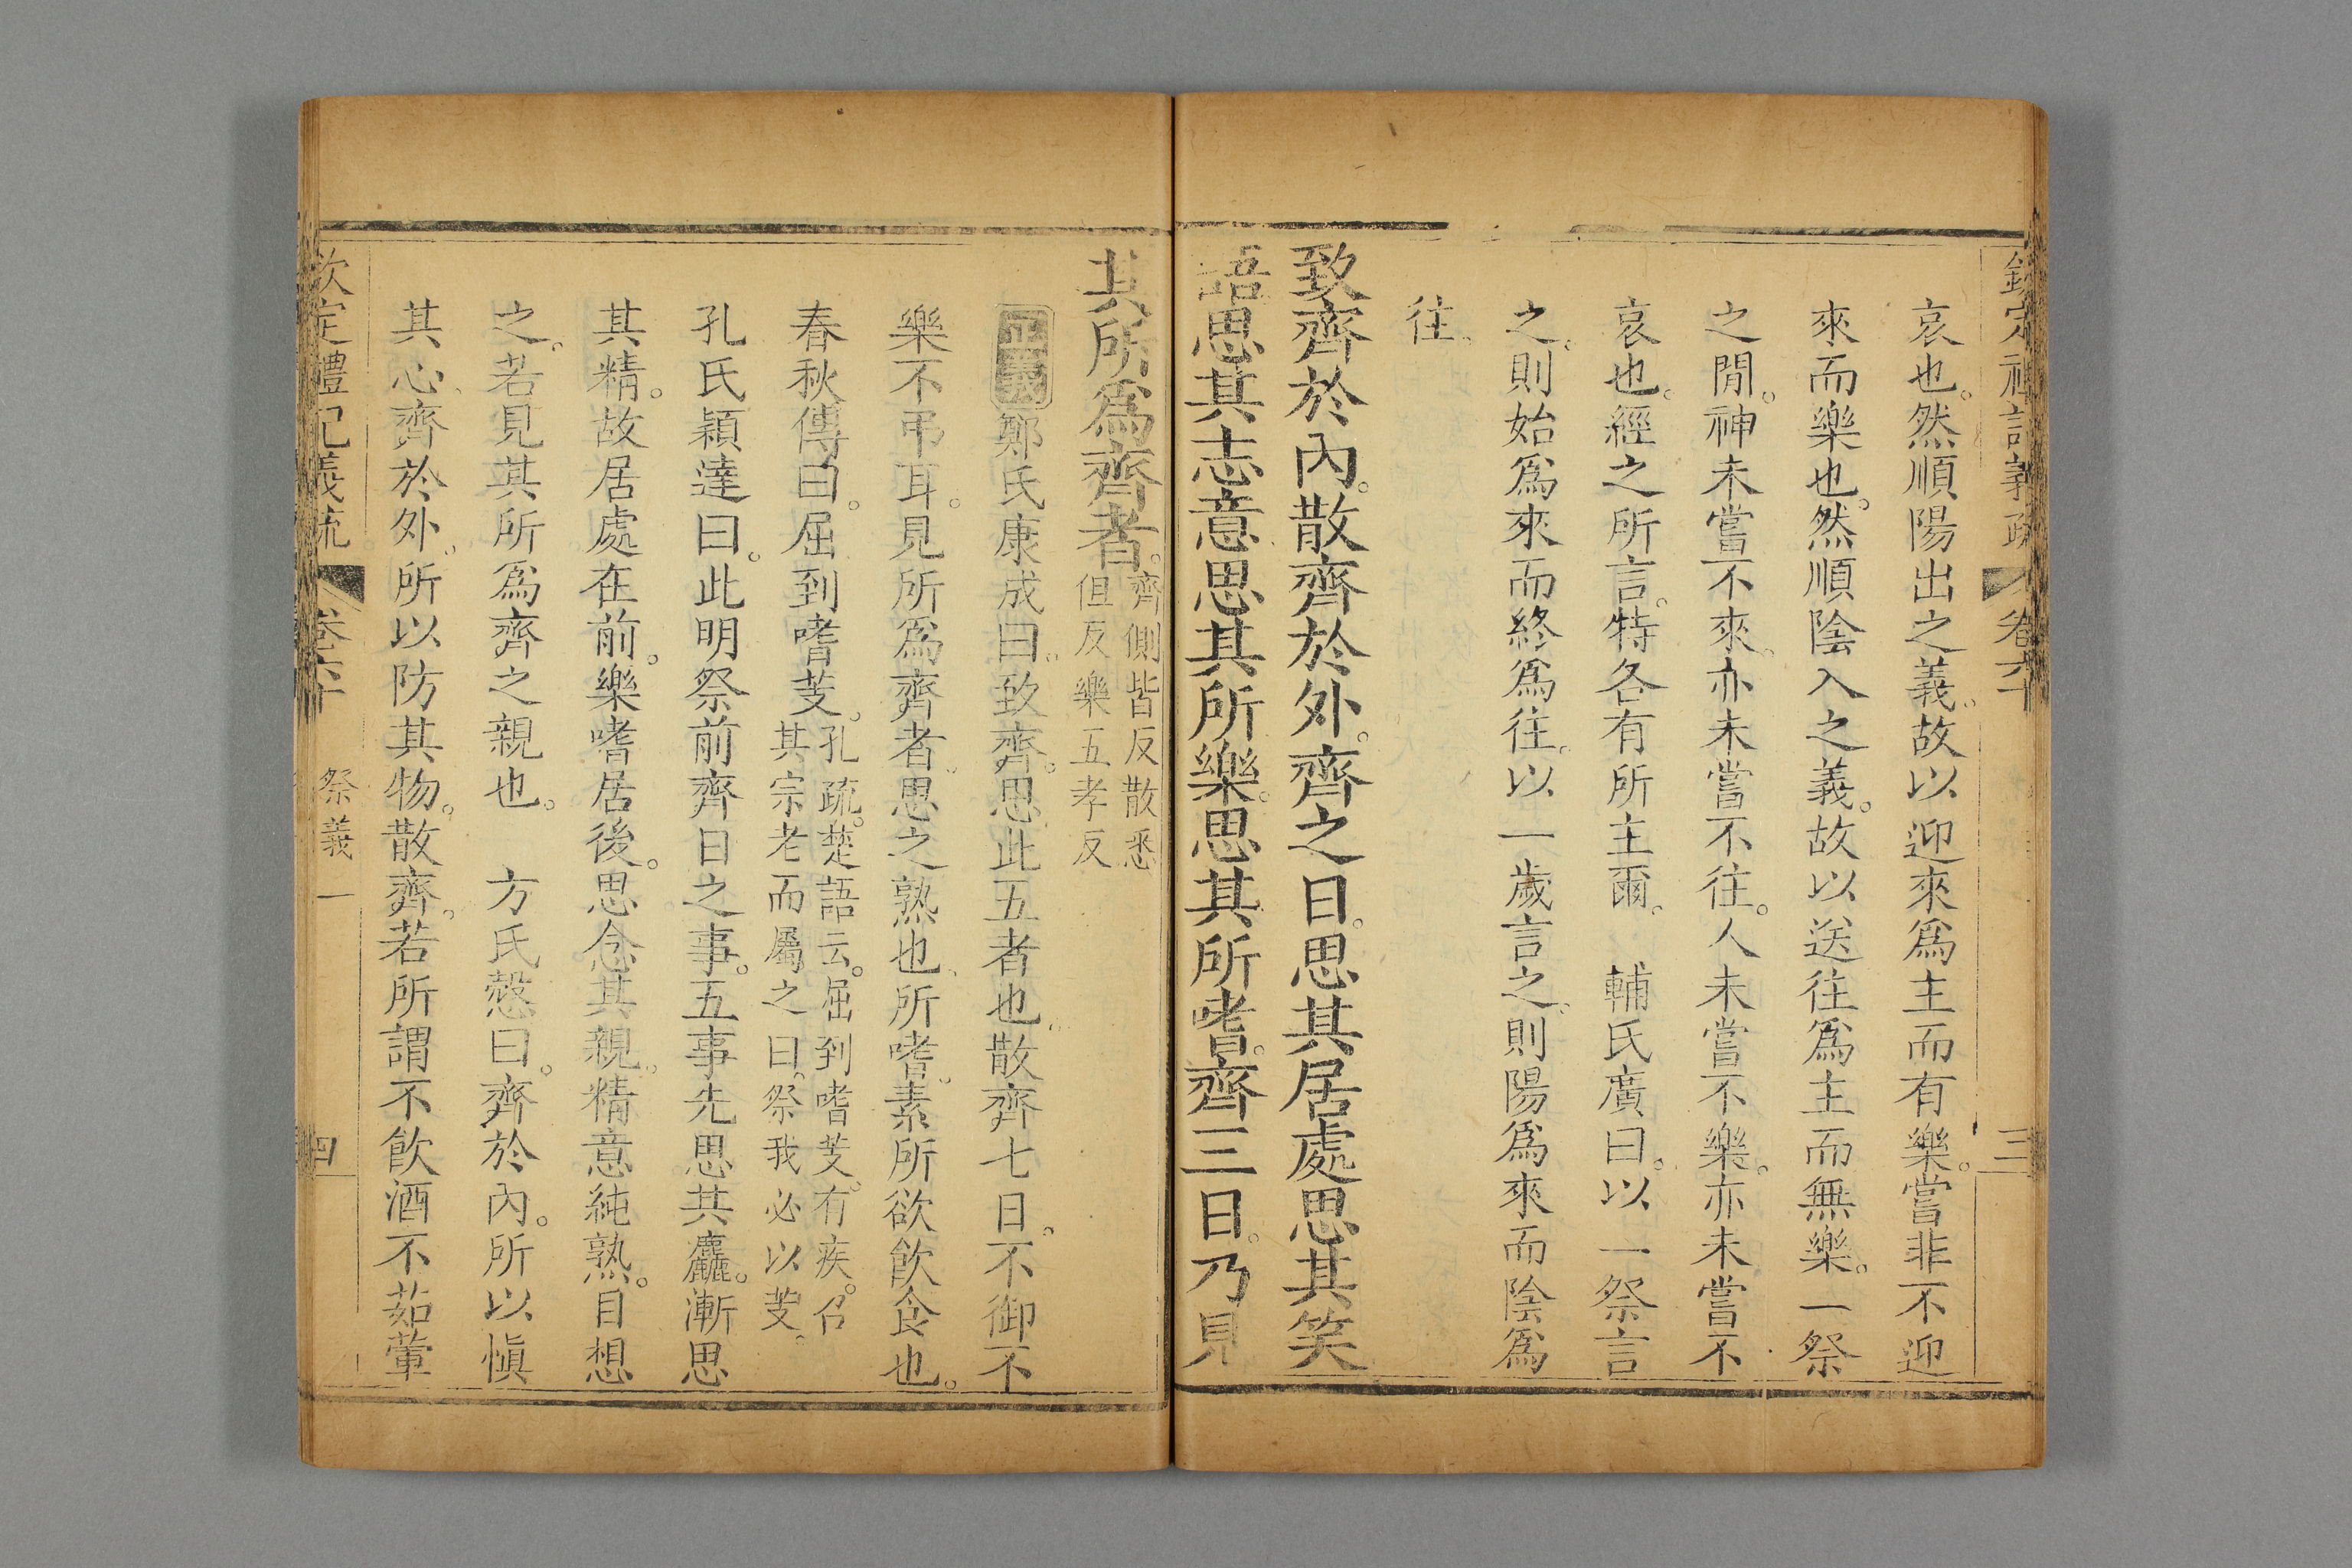 欽定禮記義疏 卷六十 三
哀也。然順陽出之義。故以迎來爲主而有樂。嘗非不迎
來而樂也。然順陰入之義。故以送往爲主而無樂。一祭
之閒。神未嘗不來。亦未嘗不往。人未嘗不樂。亦未嘗不
哀也。經之所言。特各有所主爾。 輔氏廣曰。以一祭言
之。則始爲來而終爲往。以一歲言之。則陽爲來而陰爲
往。
致齊於內。散齊於外。齊之日。思其居處。思其笑
語。思其志意。思其所樂。思其所嗜。齊三日。乃見
其所爲齊者。齊側皆反散悉
但反樂五孝反
正義 鄭氏康成曰。致齊。思此五者也。散齊七日。不御不
樂不弔耳。見所爲齊者。思之熟也。所嗜。素所欲飲食也。
春秋傳曰。屈到嗜芰。孔疏。楚語云。屈到嗜芰。有疾。召
其宗老而屬之曰。祭我必以芰。
孔氏穎達曰。此明祭前齊日之事。五事先思其麤。漸思
其精。故居處在前。樂嗜居後。思念其親。精意純熟。目想
之。若見其所爲齊之親也。 方氏慤曰。齊於內。所以愼
其心。齊於外。所以防其物。散齊。若所謂不飮酒不茹葷
欽定禮記義疏 卷六十 祭義一 四